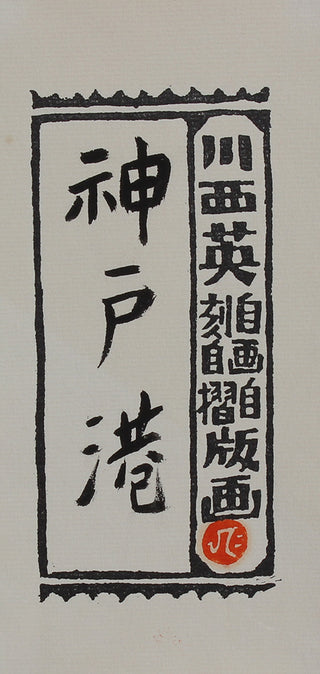 川西英自画自刻自摺版画
神戸港